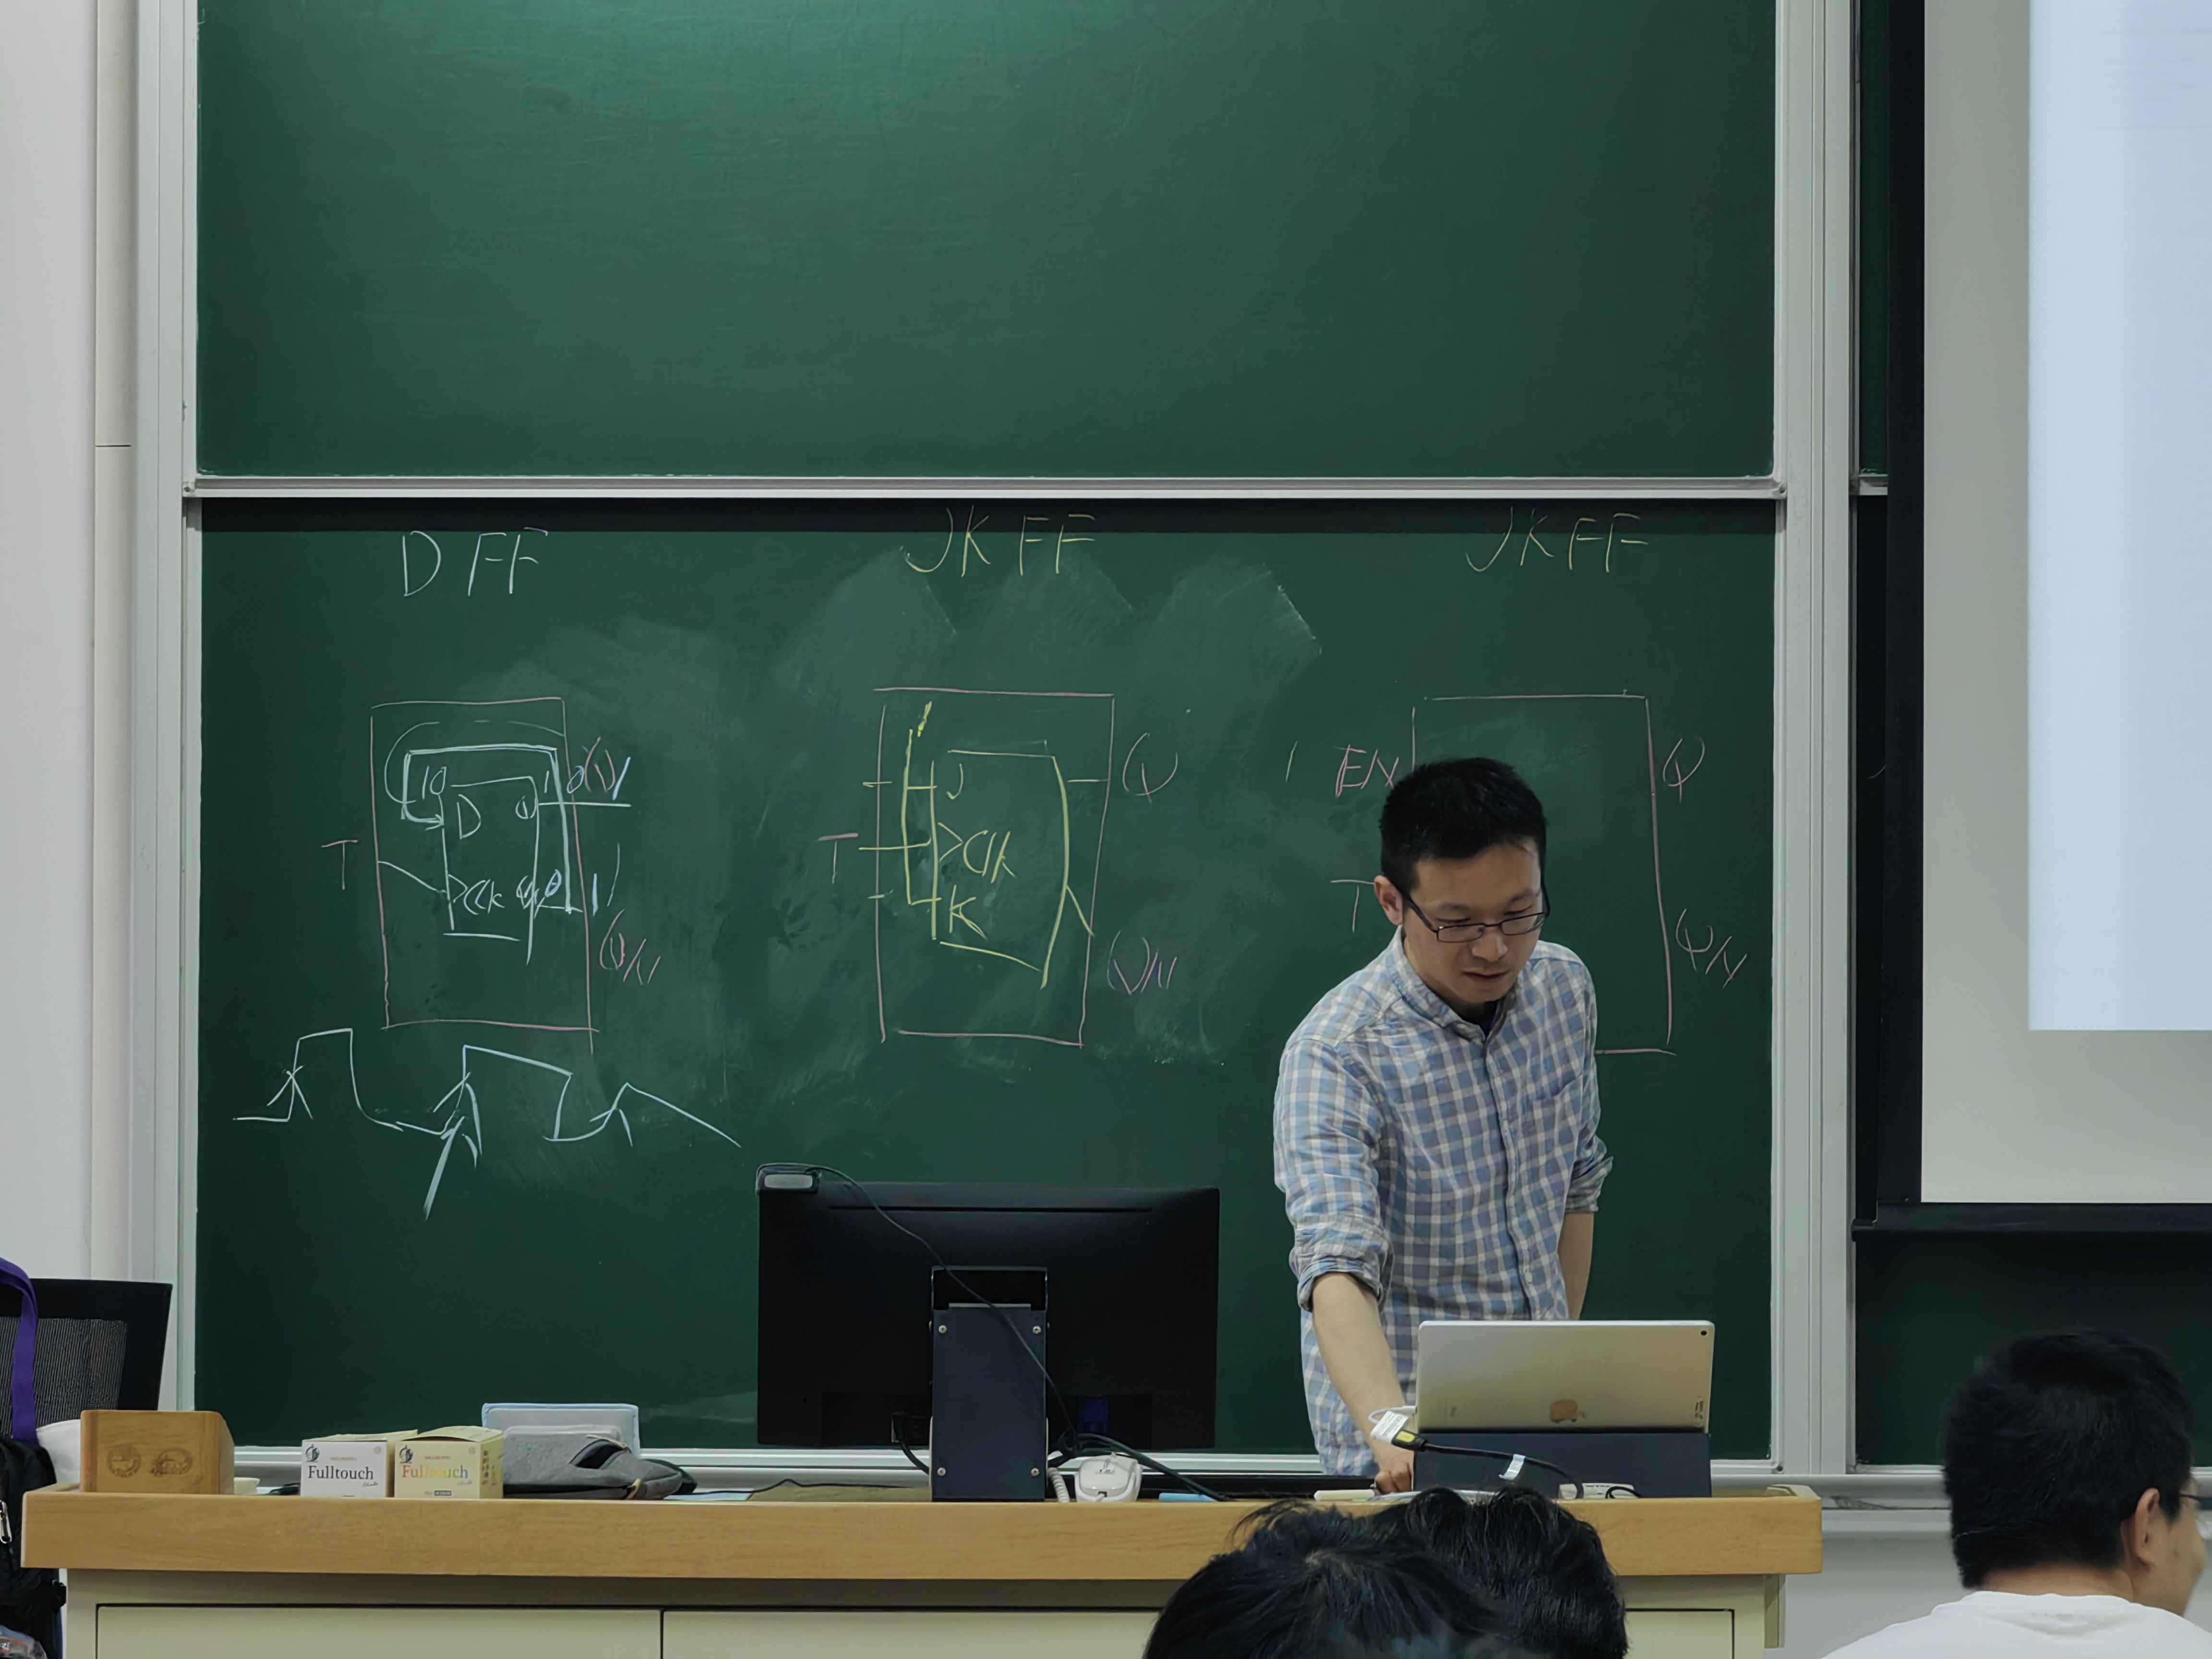 D FF
JK FF
JK FF
T
10
D
Q
1
0
Q
1
CLK
QN
0
1
QN
T
1
J
CLK
K
Q
QN
1
EN
T
Q
QN
Fulltouch
Fulltouch